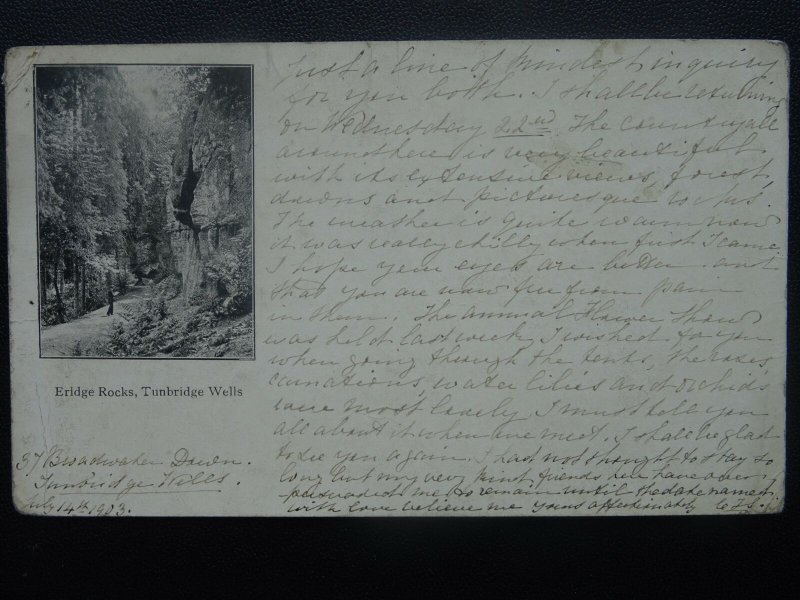 Just a line of kindest inquiry
for you both. I shall be returning
on Wednesday 22nd. The country all
around here is very beautiful
with its extensive views, forest,
downs and picturesque rocks.
The weather is quite warm now
it was really chilly when first I came
I hope your eyes are better and
that you are now free from pain
in them. The annual Flower Show
was held last week, I wished for you
when going through the tents, the roses
carnations, water lilies and orchids
were most lovely. I must tell you
all about it when we meet. I shall be glad
to see you again. I had not thought to stay so
long but my very kind friends here have over
persuaded me to remain until the date named
with love believe me yours affectionately
Eridge Rocks, Tunbridge Wells
37 Broadwater Down.
Tunbridge Wells.
July 14th 1903.